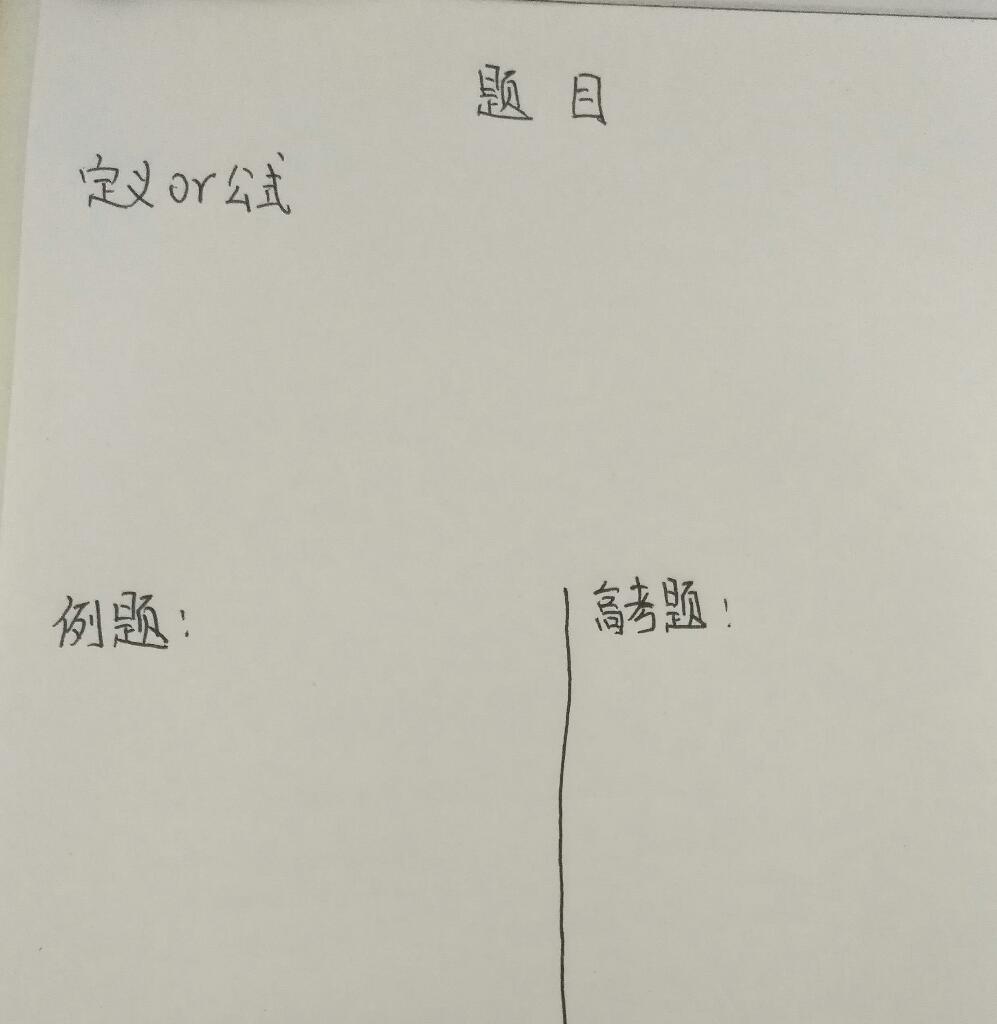 题目
定义or公式
例题：
高考题：